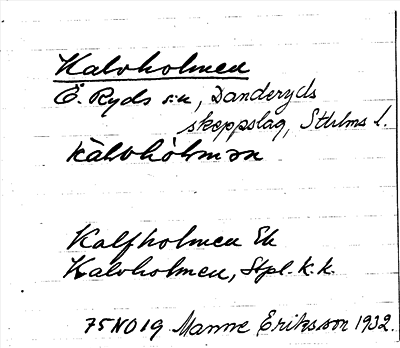 Kalvholmen
Ö. Ryds s:n, Danderyds
skeppslag, Sthlms l.
kàlvhòlmən
Kalfholmen Ek
Kalvholmen, Stpl. k. k.
75NO19 Manne Eriksson 1932.